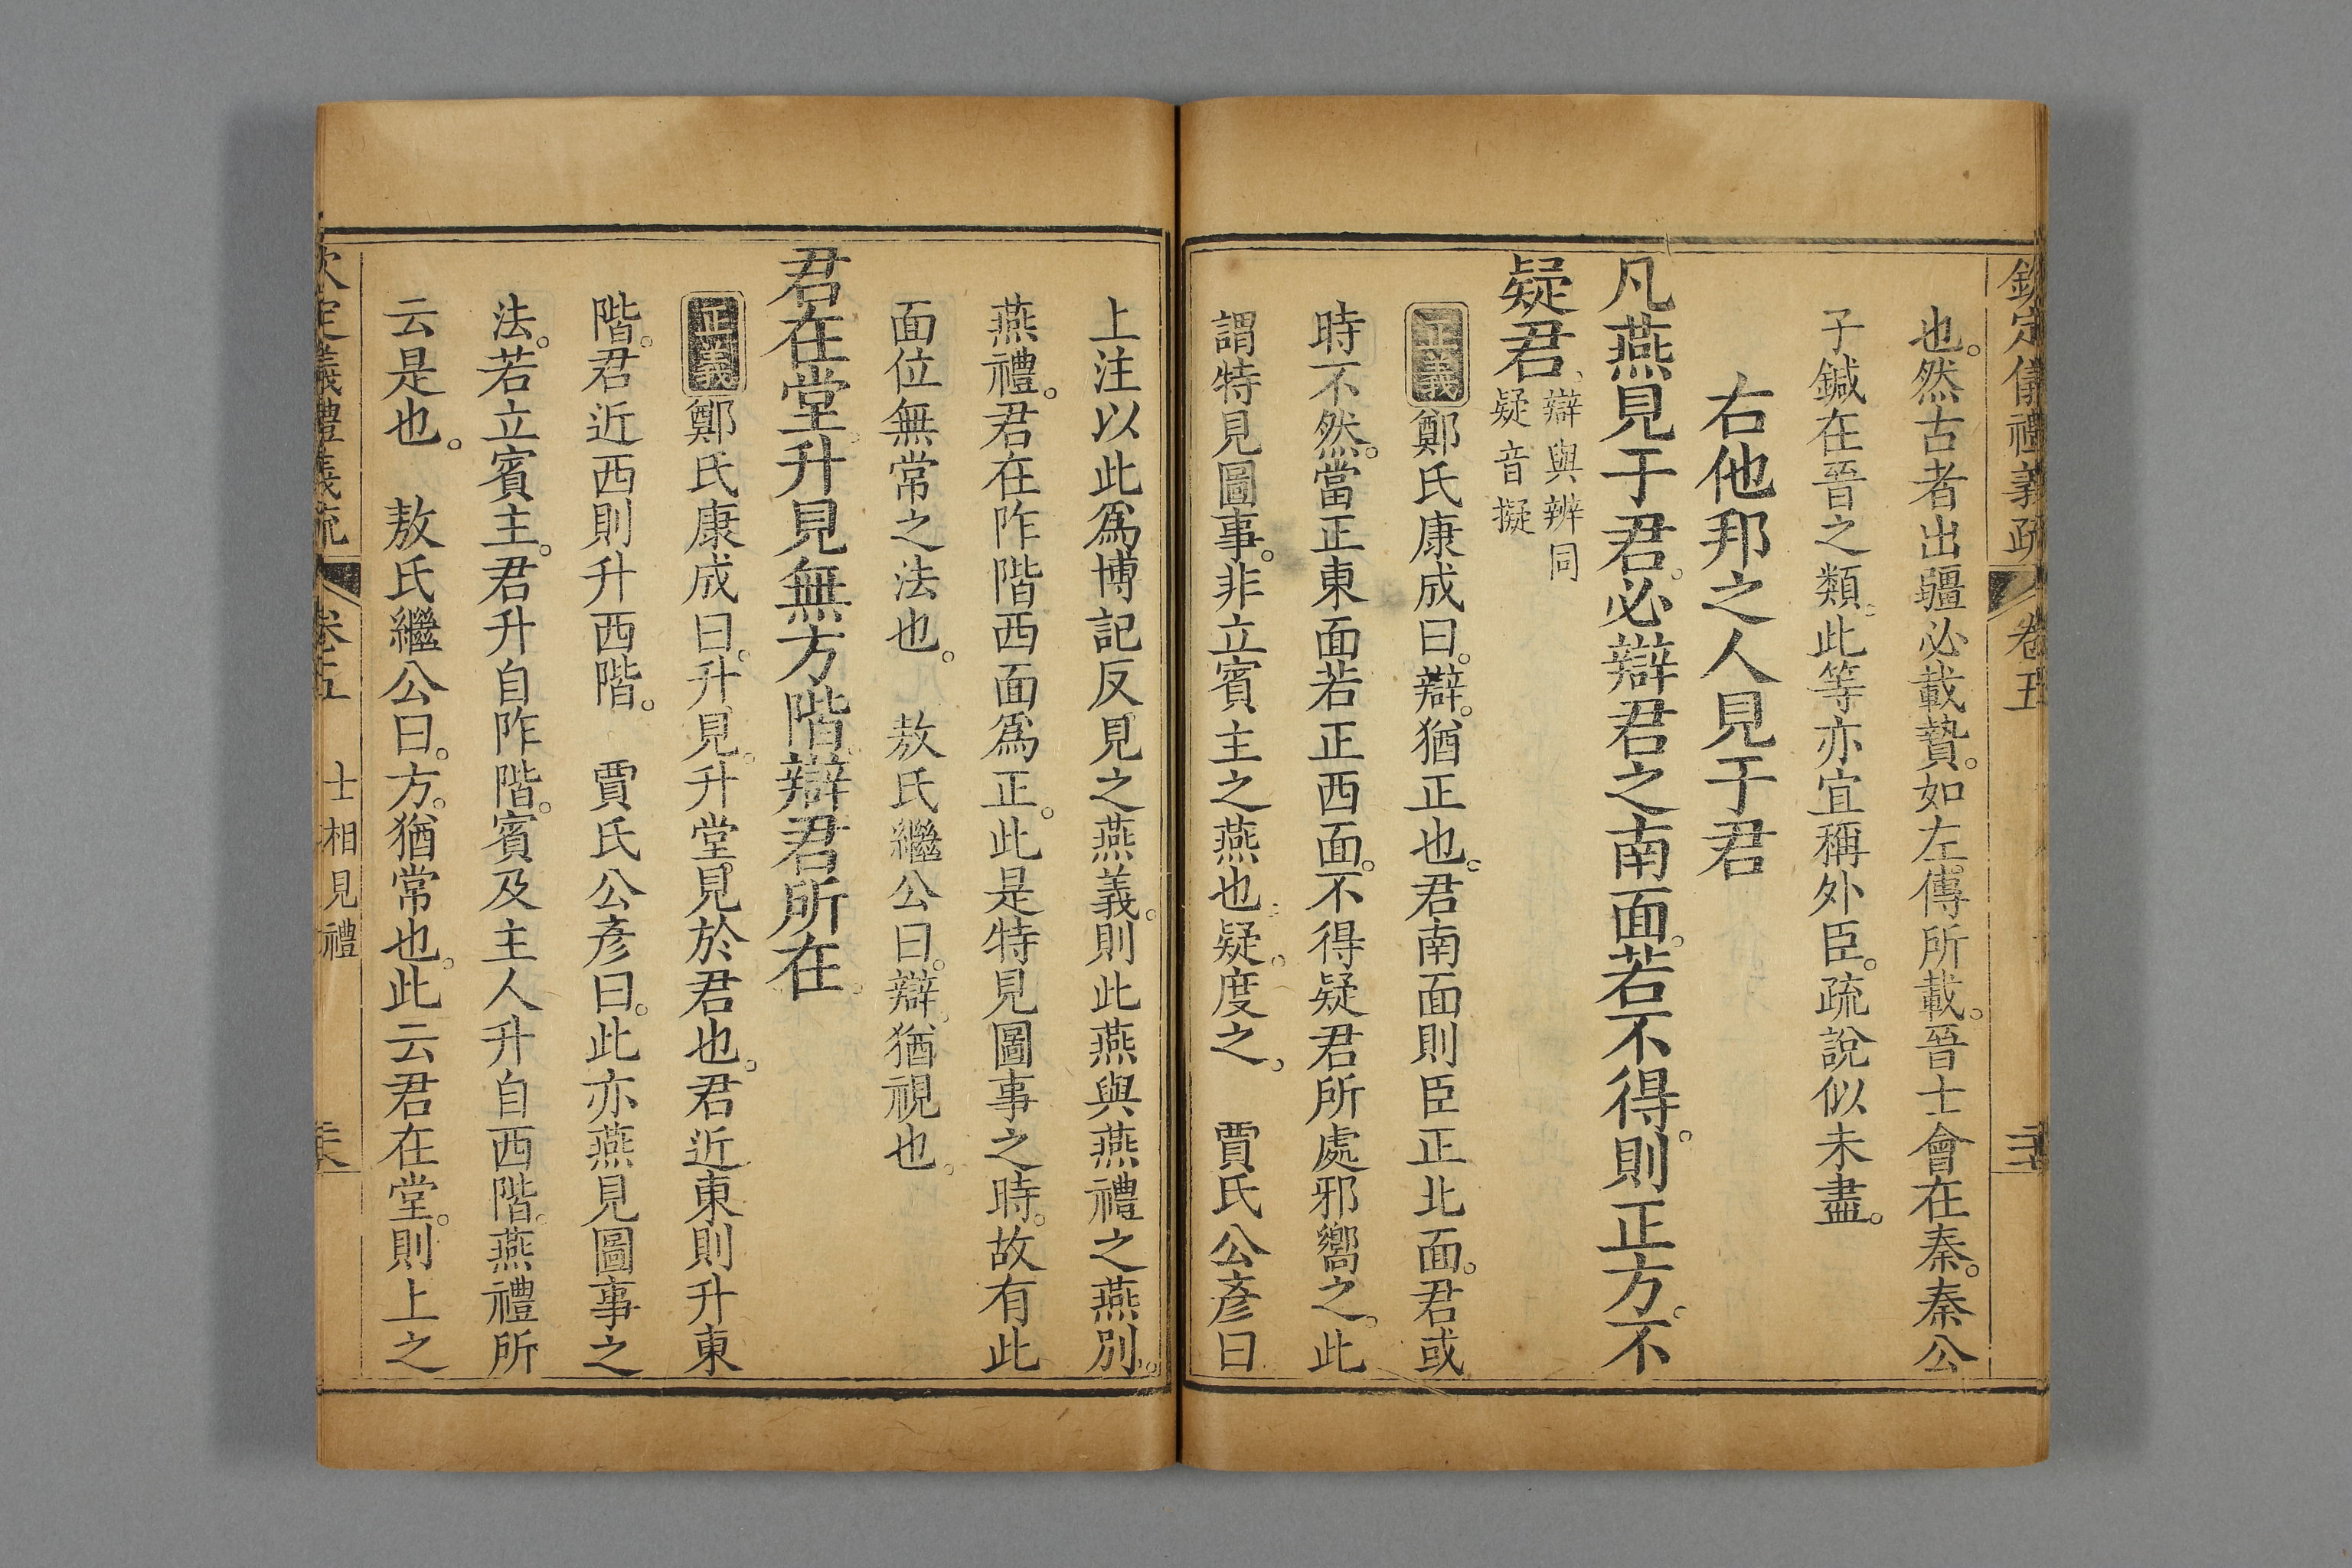 欽定儀禮義疏 卷五
也。然古者出疆必載贄。如左傳所載。晉士會在秦。秦公
子鍼在晉之類。此等亦宜稱外臣。疏說似未盡。
右他邦之人見于君
凡燕見于君。必辯君之南面。若不得。則正方。不
疑君。辯與辨同
疑音擬
正義鄭氏康成曰。辯。猶正也。君南面則臣正北面。君或
時不然。當正東面若正西面。不得疑君所處邪嚮之。此
謂特見圖事。非立賓主之燕也。疑。度之。 賈氏公彥曰
上注以此爲博記反見之燕義。則此燕與燕禮之燕別。
燕禮。君在阼階西面爲正。此是特見圖事之時。故有此
面位無常之法也。 敖氏繼公曰。辯。猶視也。
君在堂。升見無方階。辯君所在。
正義鄭氏康成曰。升見。升堂見於君也。君近東則升東
階。君近西則升西階。 賈氏公彥曰。此亦燕見圖事之
法。若立賓主。君升自阼階。賓及主人升自西階。燕禮所
云是也。 敖氏繼公曰。方。猶常也。此云君在堂。則上之
欽定儀禮義疏 卷五 士相見禮